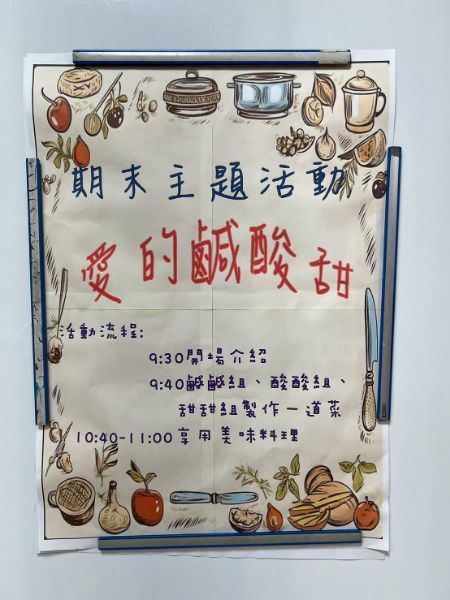 期末主題活動
愛的鹹酸甜
活動流程:
9:30開場介紹
9:40鹹鹹組、酸酸組、
甜甜組製作一道菜
10:40-11:00享用美味料理